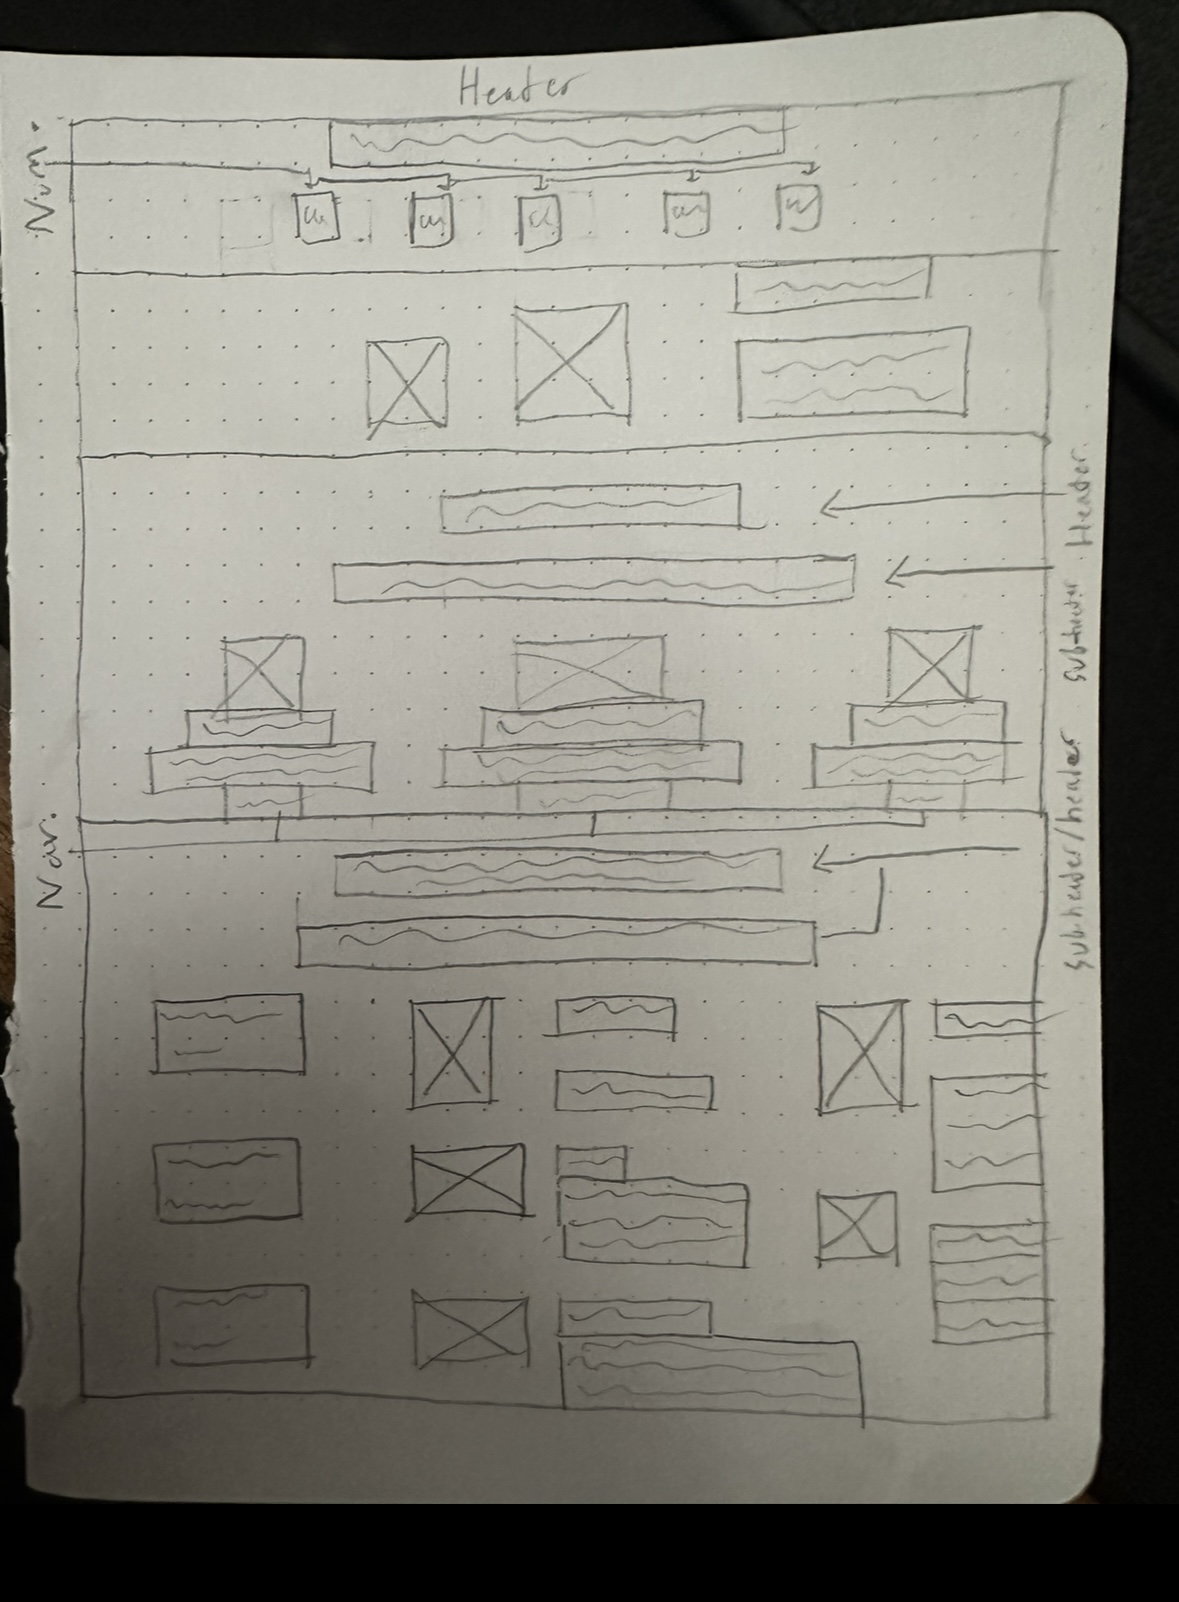 Header
Nav.
Header.
subheader
subheader/header
Nav.